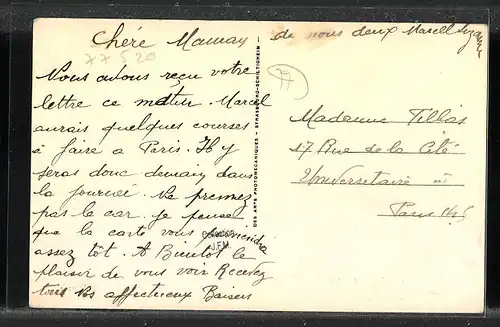 Chére Maman
de nous deux Marcel Suzanne
Nous avons reçu votre
lettre ce matin. Marcel
aurais quelques courses
à faire a Paris. Il y
seras donc demain dans
la journéé. Ne prennez
pas le car. je pense
que la carte vous
assez tôt. A Bientot le
plaisir de vous voir Recevez
tous nos affectueux Baisers
DES ARTS PHOTOMECANIQUES - STRASBOURG-SCHILTIGHEIM
77
Madame
17 Rue de la Cité
Universitaire à
Paris 14è
J.F.M.